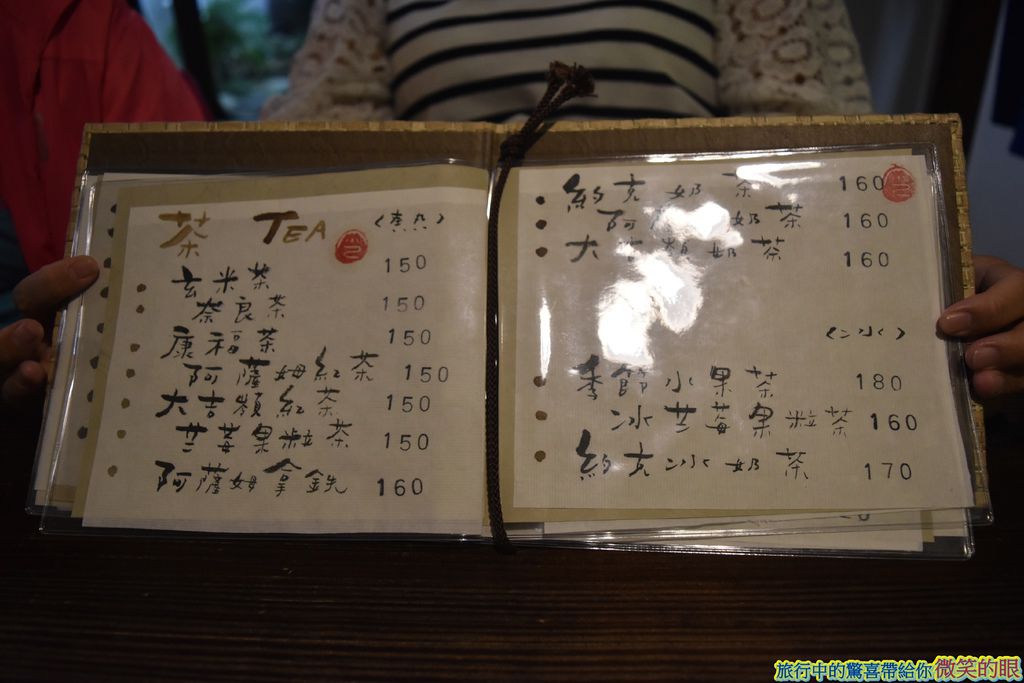 茶 TEA
玄米茶 150
奈良茶 150
康福茶 150
阿薩姆紅茶 150
大吉嶺紅茶 150
芒莓果粒茶 150
阿薩姆拿鐵 160
約克奶茶 160
阿薩姆奶茶 160
大吉嶺奶茶 160
<冰>
季節水果茶 180
冰芒莓果粒茶 160
約克冰奶茶 170
旅行中的驚喜帶給你微笑的眼